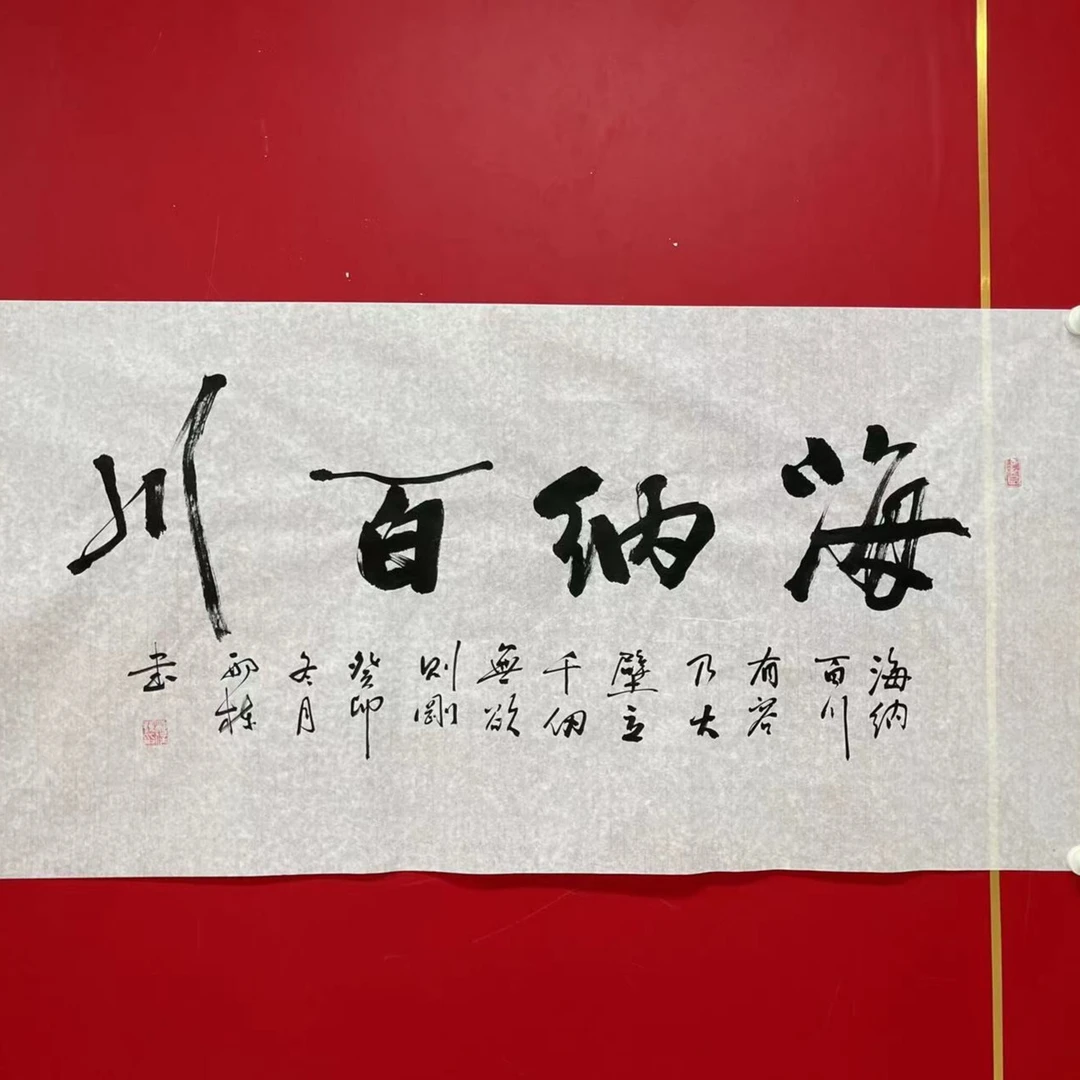 海纳百川
海纳
百川
有容
乃大
壁立
千仞
無欲
则剛
癸卯
冬月
栋
书